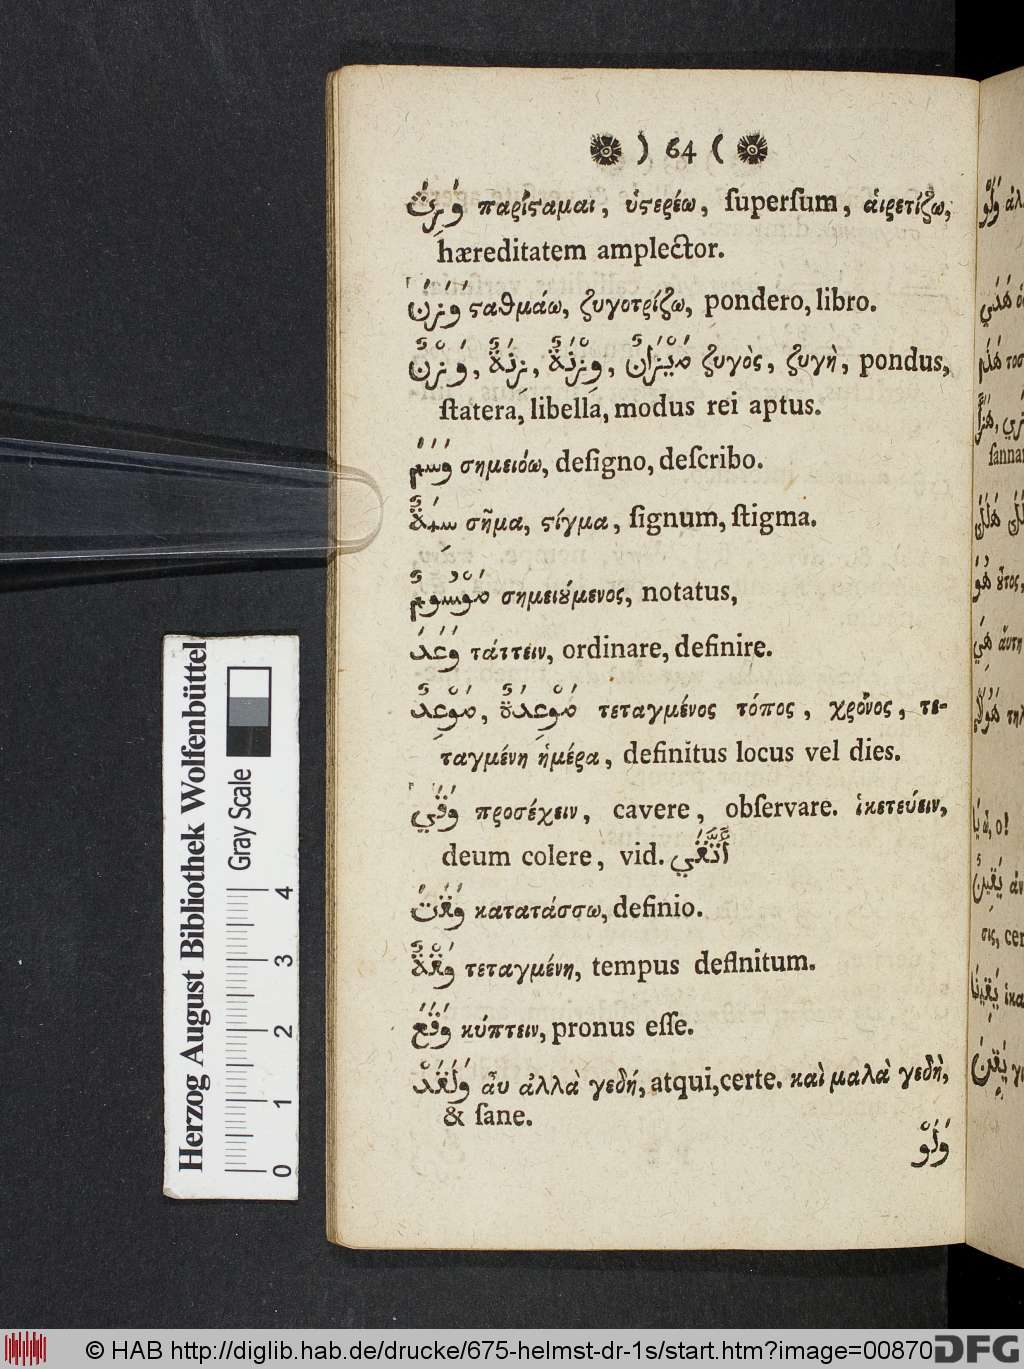 ) 64 (
وَرِثَ παρίϛαμαι, ὑϛερέω, ſuperſum, ἁιρετίζω,
hæreditatem amplector.
وَزَنَ ϛαθμάω, ζυγοτρίζω, pondero, libro.
وَزْنٌ, زِنَةٌ, وِزْنَةٌ, مَيْزَانٌ ζυγὸς, ζυγὴ, pondus,
ſtatera, libella, modus rei aptus.
وَسَمَ σημειόω, deſigno, deſcribo.
سِمَةٌ σῆμα, ϛίγμα, ſignum, ſtigma.
مَوْسُومٌ σημειȣ́μενος, notatus,
وَعَدَ τάττειν, ordinare, definire.
مَوْعِدٌ, مَوْعِدَةٌ τεταγμένος τόπος, χρόνος, τε-
ταγμένη ἡμέρα, definitus locus vel dies.
وَقَي προσέχειν, cavere, obſervare. ἱκετεύειν,
deum colere, vid. أَتَّقَي
وَقَتَ κατατάσσω, definio.
وَقْةٌ τεταγμένη, tempus definitum.
وَقَعَ κύπτειν, pronus eſſe.
وَلَقَدْ ἀυ ἀλλὰ γεδή, atqui, certe. καὶ μαλὰ γεδὴ,
& ſane.
وَلَوْ
Herzog August Bibliothek Wolfenbüttel
Gray Scale
0 1 2 3 4
© HAB http://diglib.hab.de/drucke/675-helmst-dr-1s/start.htm?image=00870
DFG